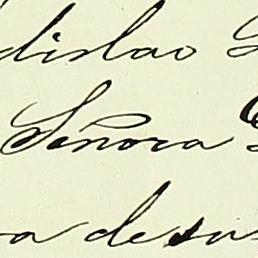 dislao
Señora
a de su